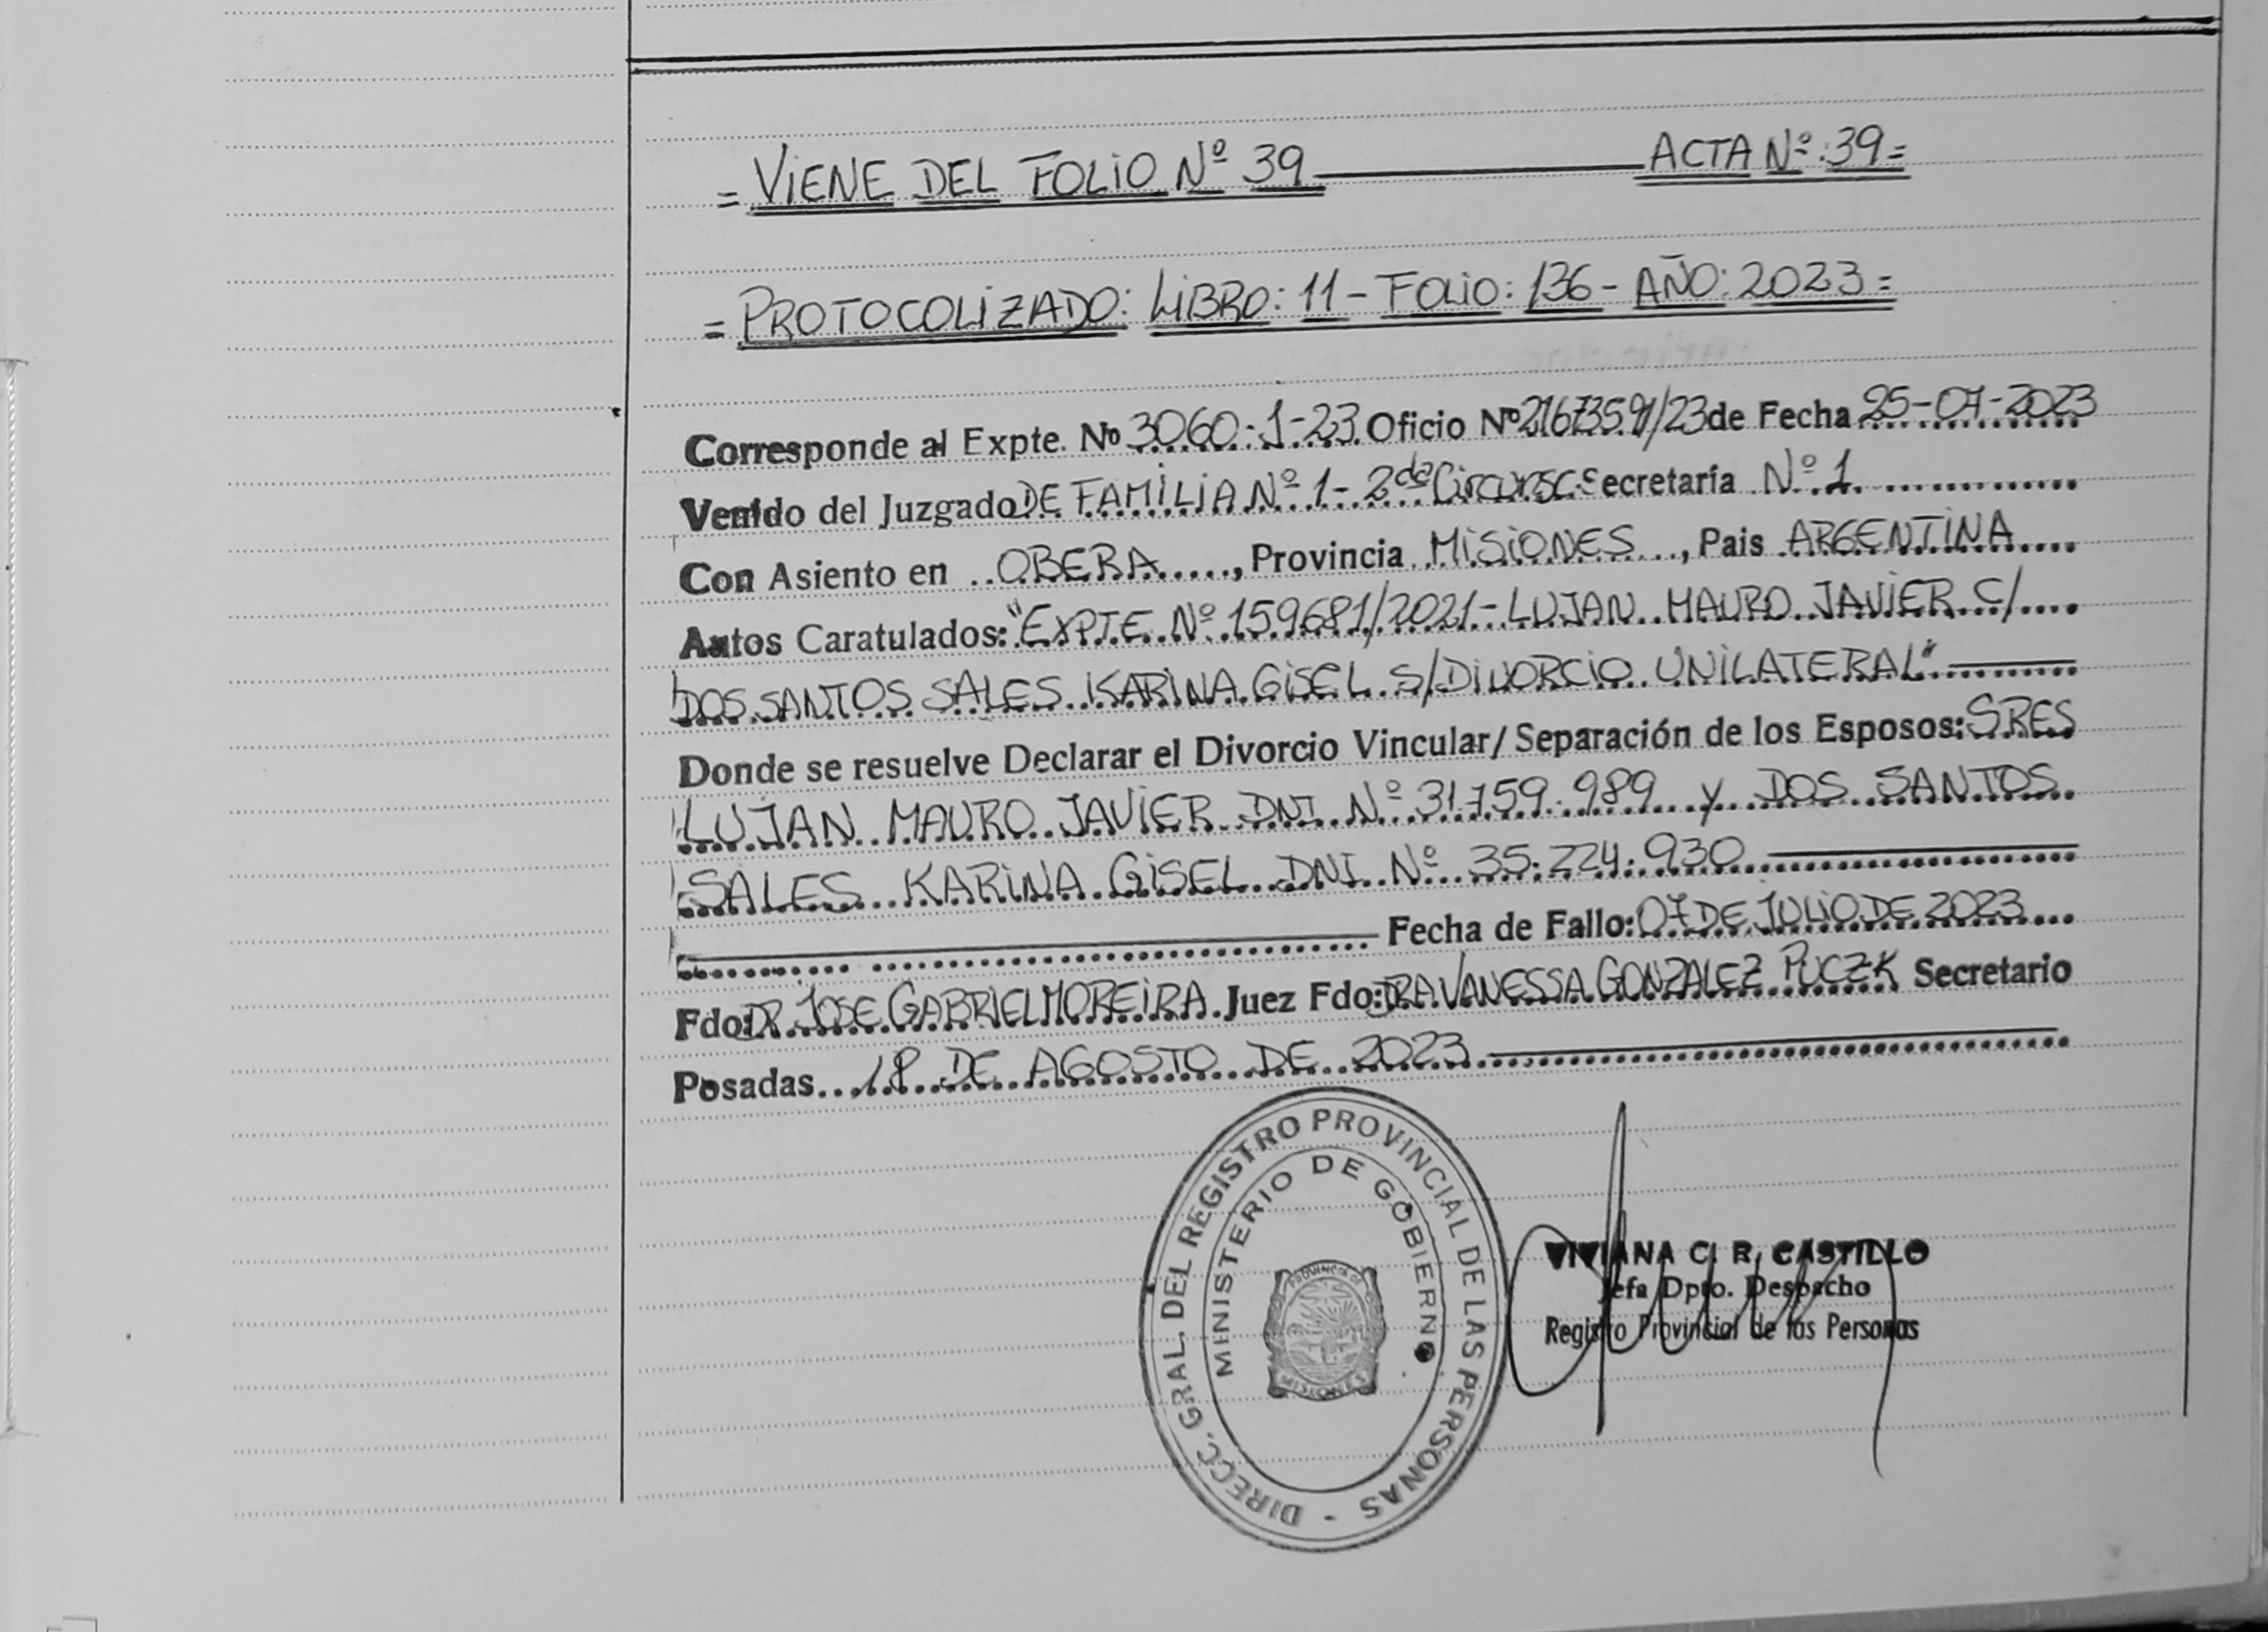 = VIENE DEL FOLIO Nº 39 ACTA Nº: 39 =
= PROTOCOLIZADO: LIBRO: 11 - FOLIO: 136 - AÑO: 2023 =
Corresponde al Expte. Nº 3060-1-23 Oficio Nº /23 de Fecha 25-07-2023
Venido del Juzgado DE FAMILIA Nº 1 - 2da Circunsc. Secretaría Nº 1
Con Asiento en OBERA, Provincia MISIONES, Pais ARGENTINA
Autos Caratulados: "EXPTE Nº 159681/2021 - LUJAN MAURO JAVIER C/
DOS SANTOS SALES KARINA GISEL S/DIVORCIO UNILATERAL"
Donde se resuelve Declarar el Divorcio Vincular/Separación de los Esposos: SRES
LUJAN MAURO JAVIER DNI Nº 31.759.989 y DOS SANTOS
SALES KARINA GISEL DNI Nº 35.224.930
Fecha de Fallo: 07 DE JULIO DE 2023
Fdo: DR. JOSE GABRIEL MOREIRA. Juez Fdo: DRA VANESSA GONZALEZ PUCZK Secretario
Posadas 18 DE AGOSTO DE 2023
DIRECC. GRAL. DEL REGISTRO PROVINCIAL DE LAS PERSONAS -
MINISTERIO DE GOBIERNO
PROVINCIA DE
MISIONES
VIVIANA C. R. CASTILLO
Jefa Dpto. Despacho
Registro Provincial de las Personas